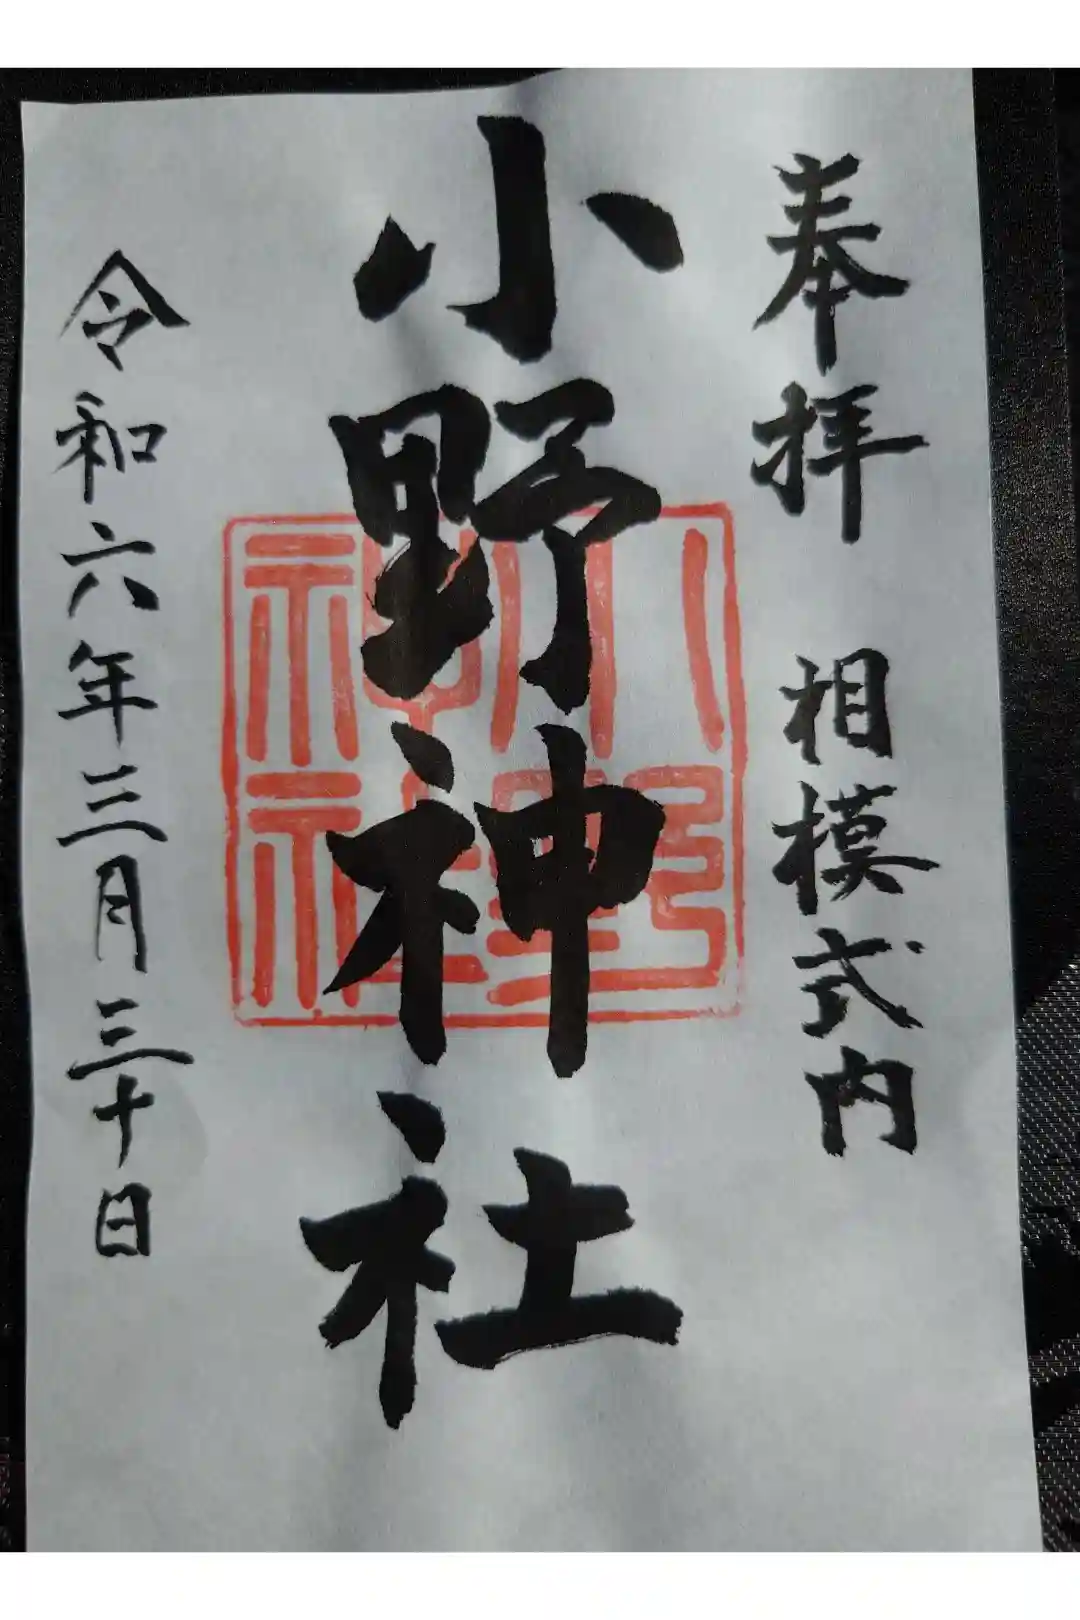 奉拝 相模式内
小野神社
小野神社
令和六年三月三十日